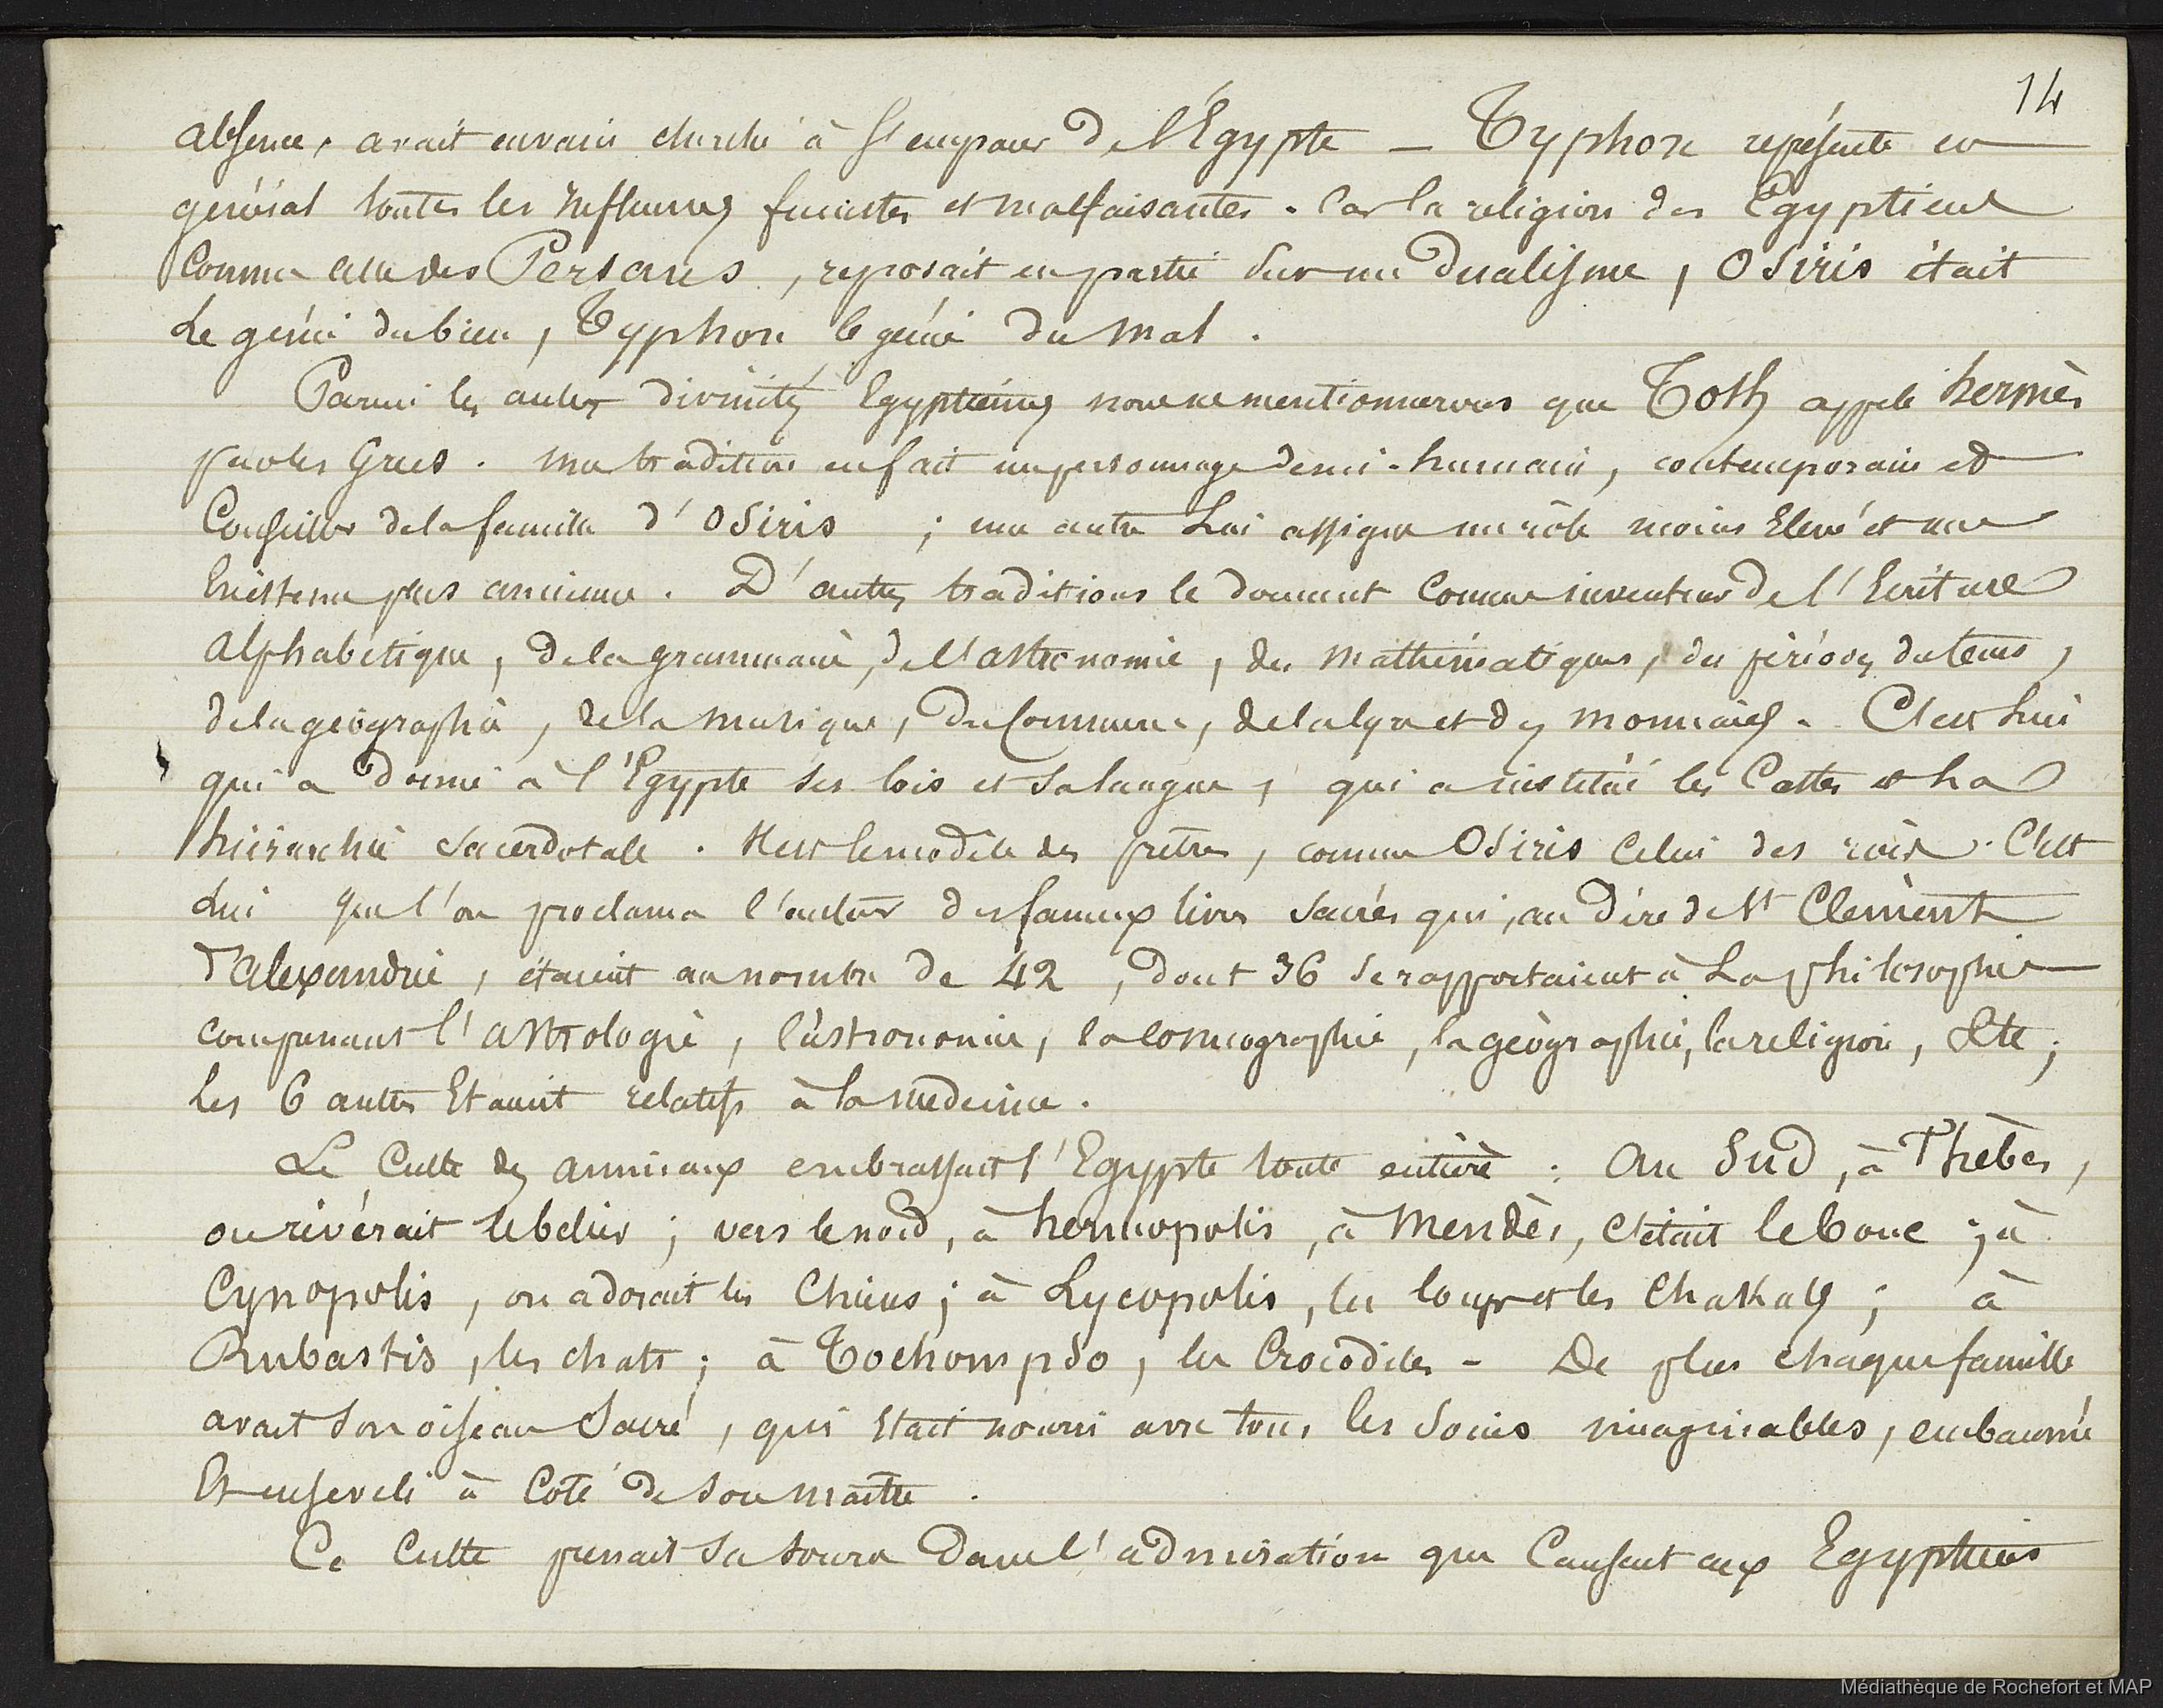 14
absence, avait en vain cherché à s'emparer de l'Égypte — Typhon représente en
général toutes les influences funestes et malfaisantes. Car la religion des Egyptiens
Comme celle des Persans, reposait en partie sur un dualisme, Osiris était
Le génie du bien, Typhon le génie du mal.
Parmi les autres divinités Egyptiennes nous ne mentionnerons que Toth appelé hermès
par les Grecs. Une tradition en fait un personnage demi-humain, contemporain et
Conseiller de la famille d'Osiris ; une autre Lui assigne un rôle moins Elevé et une
Existence plus ancienne. D'autres traditions le donnent Comme inventeur de l'Ecriture
alphabétique, de la grammaire, de l'astronomie, des mathématiques, des périodes du tems,
de la géographie, de la musique, du Commerce, de l'algre et des monnaies. C'est Lui
qui a donné à l'Egypte ses lois et sa langue, qui a institué les Castes et La
hiérarchie Sacerdotale. Il est le modèle des prêtres, comme Osiris Celui des rois. C'est
Lui que l'on proclama l'auteur des fameux livres Sacrés qui, au dire de St Clément
d'alexandrie, étaient au nombre de 42, dont 36 se rapportaient à La philosophie
comprenant l'astrologie, l'astronomie, la cosmographie, la géographie, la religion, Etc;
Les 6 autres Etaient relatifs à la médecine.
Le Culte des animaux embrassait l'Egypte toute entière : Au Sud, à Thèbes,
on révérait le bélier ; vers le nord, à hermopolis, à Mendès, c'était le bouc ; à
Cynopolis, on adorait les Chiens ; à Lycopolis, les loups et les Chakals ; à
Bubastis, les chats ; à Tochompso, les Crocodiles - De plus chaque famille
avait son oiseau Sacré, qui était nourri avec tous les soins imaginables, embaumé
Et enseveli à Coté de son maître.
Ce Culte prenait sa source dans l'admiration que Causent aux Egyptiens
Médiathèque de Rochefort et MAP